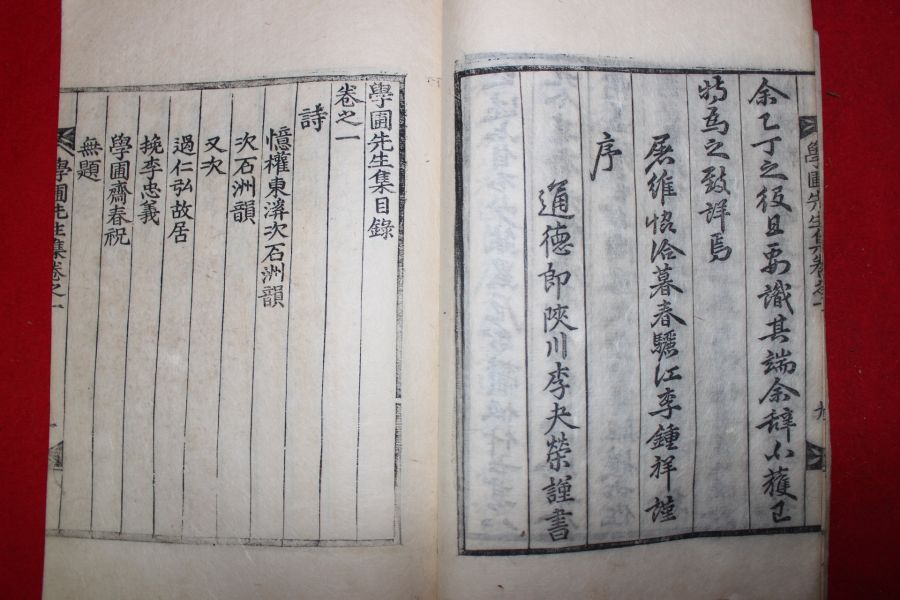 余乙丁之役且要識其端余辞不獲已
特為之敍詳焉
屠維恊洽暮春驪江李鍾祥謹
序
通德郎陜川李夬榮謹書
學圃先生集目錄
卷之一
詩
憶權東溟次石洲韻
次石洲韻
又次
過仁弘故居
挽李忠義
學圃齋春祝
無題
學圃先生集卷之一